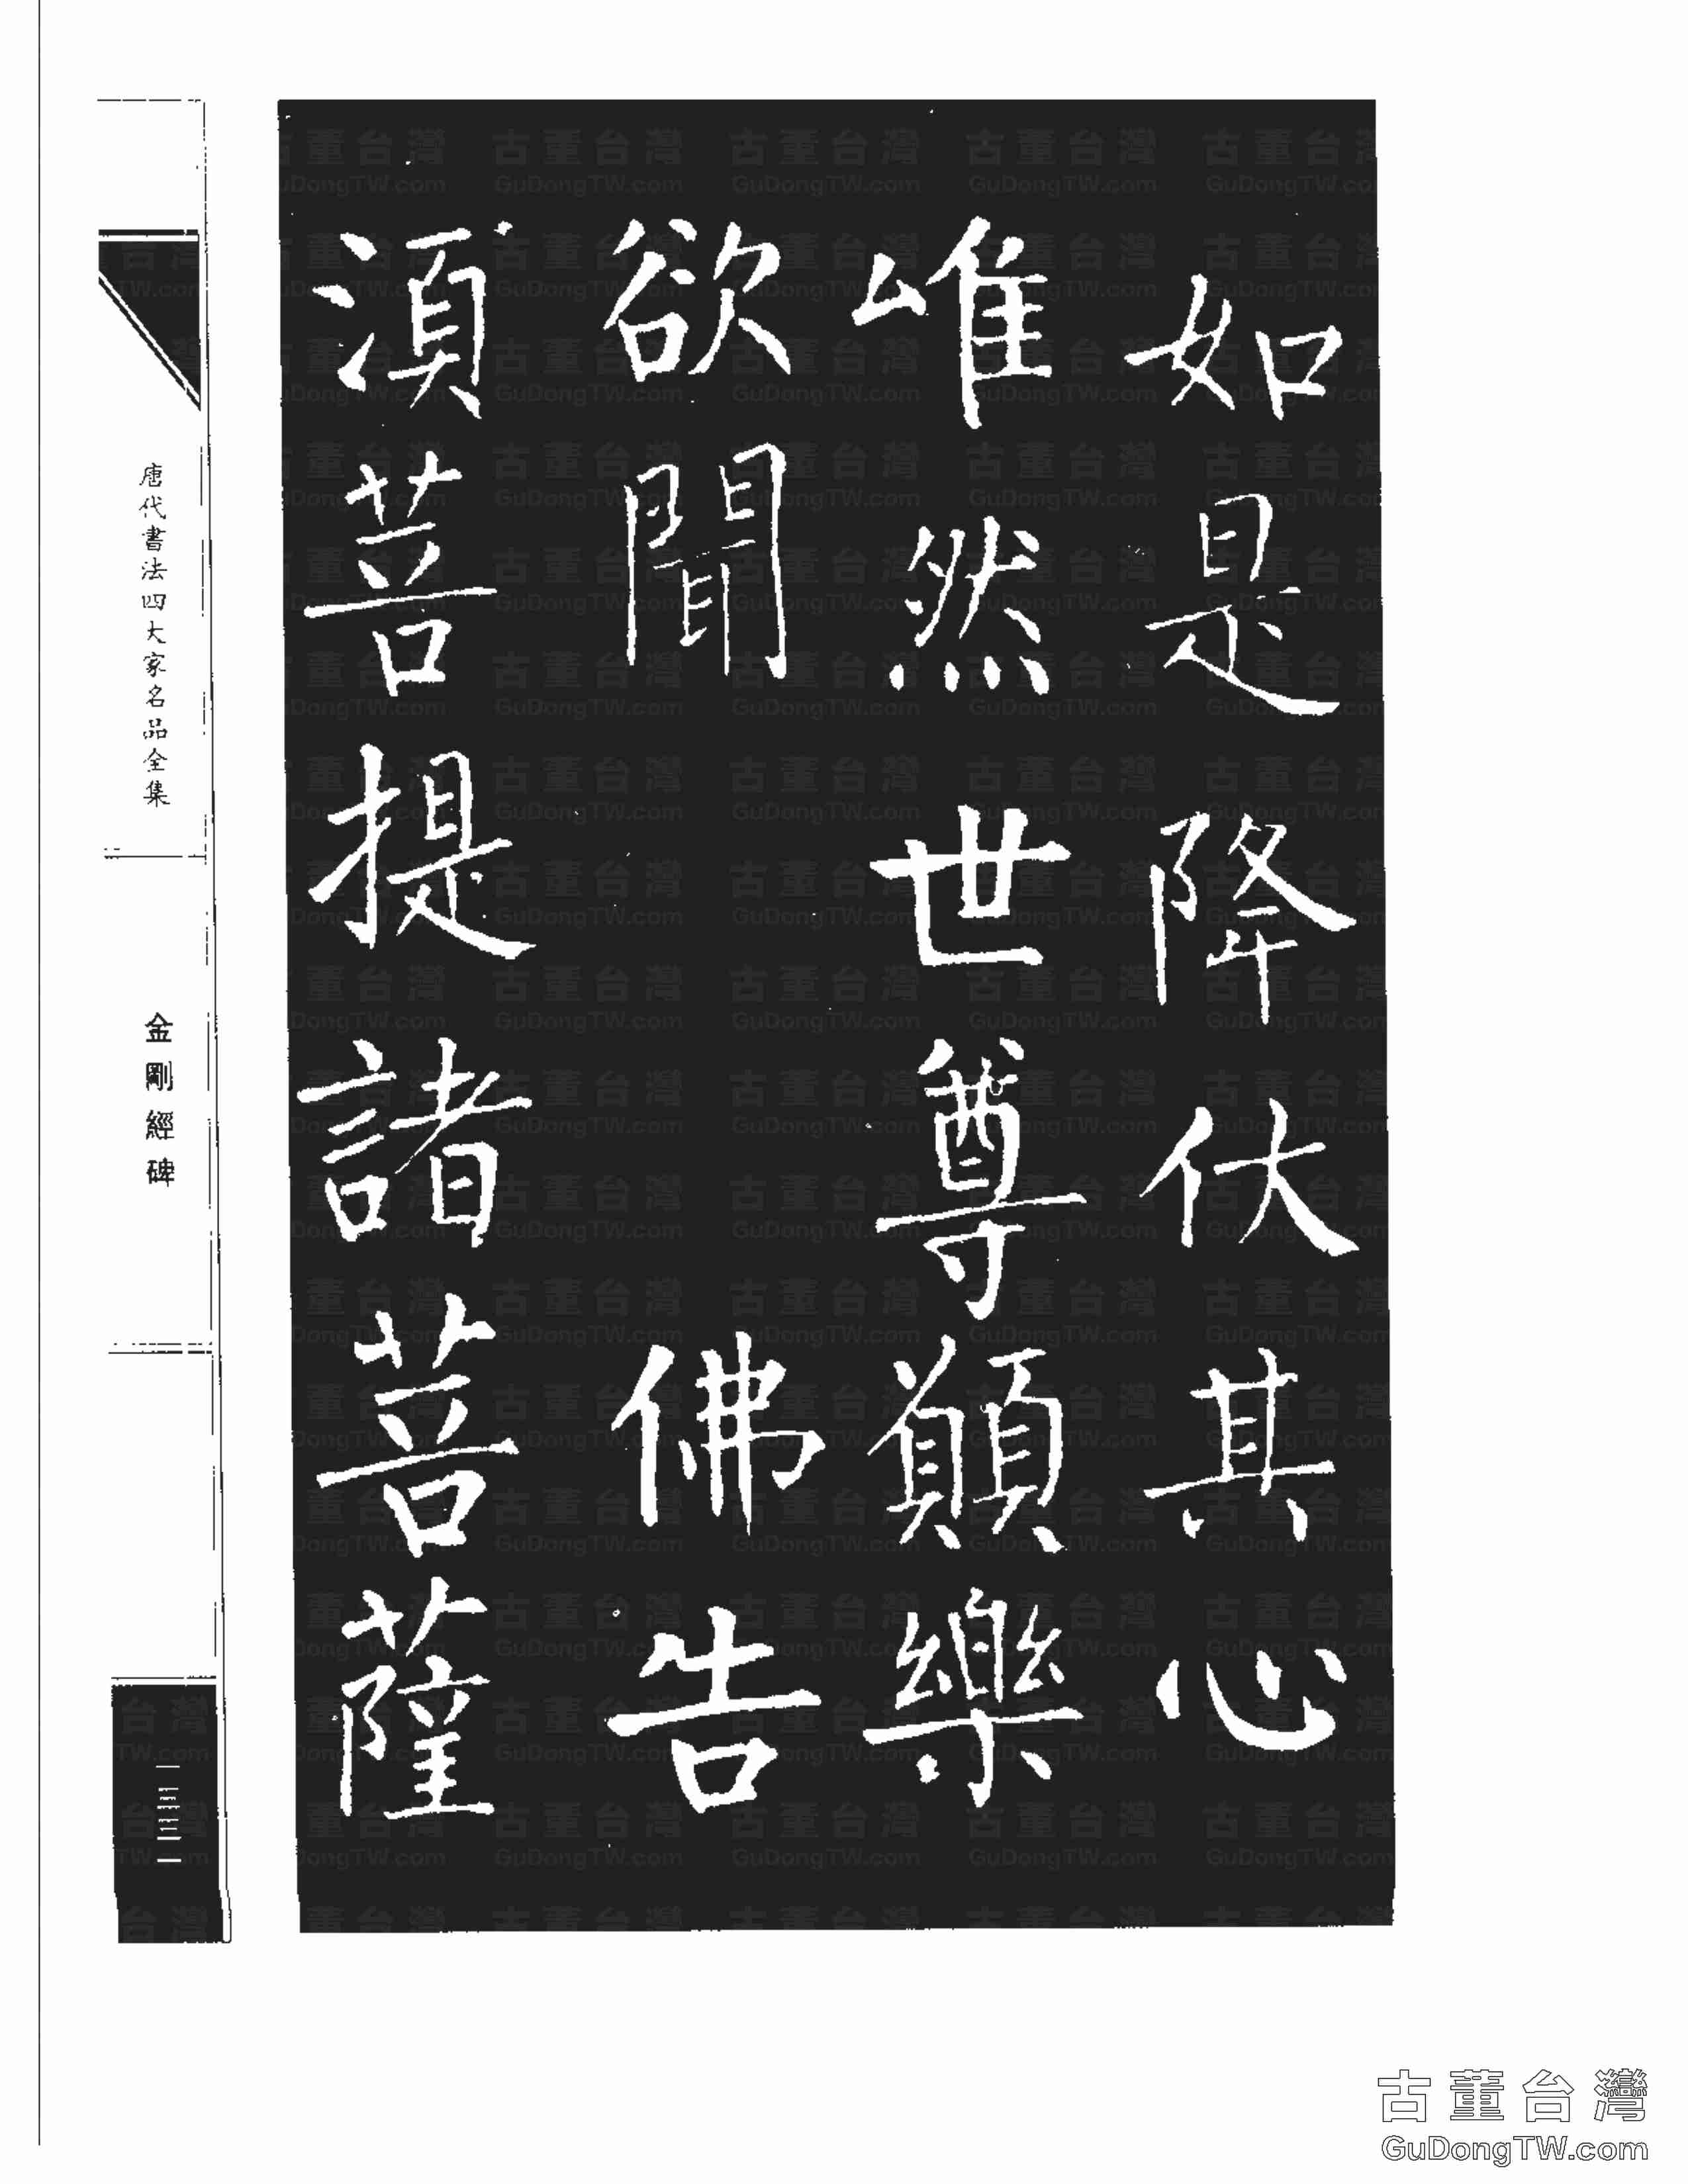 如是降伏其心
唯然世尊願樂
欲聞 佛告
須菩提諸菩薩
唐代書法四大家名品全集
金剛經碑
古董台灣
GuDongTW.com